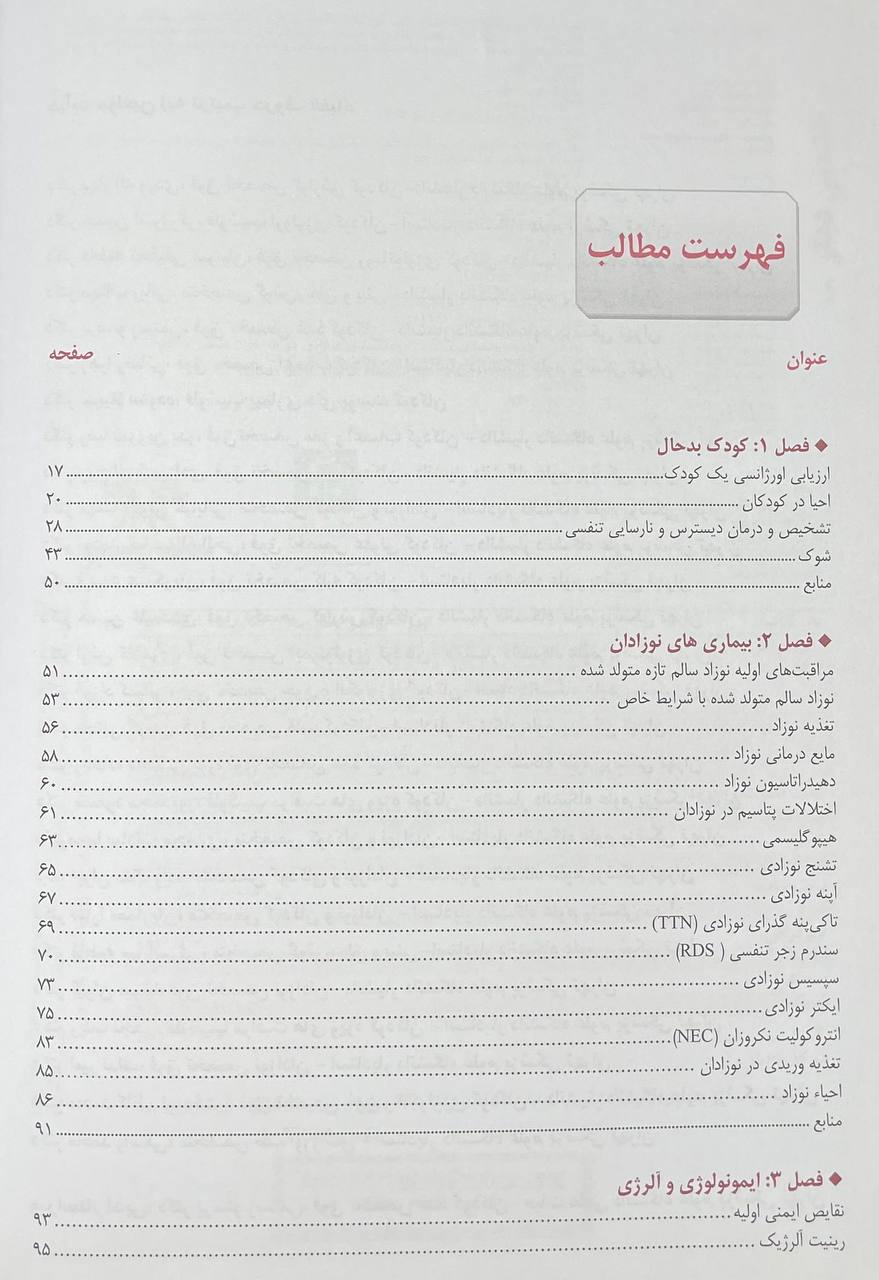 فهرست مطالب
عنوان صفحه
◆ فصل ۱: کودک بدحال
ارزیابی اورژانسی یک کودک ۱۷
احیا در کودکان ۲۰
تشخیص و درمان دیسترس و نارسایی تنفسی ۲۸
شوک ۴۳
منابع ۵۰
◆ فصل ۲: بیماری های نوزادان
مراقبت‌های اولیه نوزاد سالم تازه متولد شده ۵۱
نوزاد سالم متولد شده با شرایط خاص ۵۳
تغذیه نوزاد ۵۶
مایع درمانی نوزاد ۵۸
دهیدراتاسیون نوزاد ۶۰
اختلالات پتاسیم در نوزادان ۶۱
هیپوگلیسمی ۶۳
تشنج نوزادی ۶۵
آپنه نوزادی ۶۷
تاکی‌پنه گذرای نوزادی (TTN) ۶۹
سندرم زجر تنفسی ( RDS) ۷۰
سپسیس نوزادی ۷۳
ایکتر نوزادی ۷۵
انتروکولیت نکروزان (NEC) ۸۳
تغذیه وریدی در نوزادان ۸۵
احیاء نوزاد ۸۶
منابع ۹۱
◆ فصل ۳: ایمونولوژی و آلرژی
نقایص ایمنی اولیه ۹۳
رینیت آلرژیک ۹۵